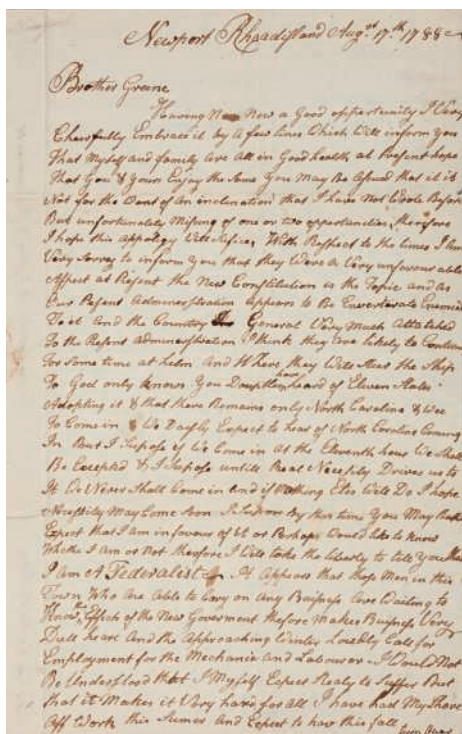 Newport Rhoadisland Augst 17th 1788
Brother Greene
Having Now a Good opportunity I Very
Chearfully Embrace it by A few lines Which Will inform you
That Myself and family Are All in Good health at Present hope
That You & Yours Enjoy the Same You May Be Assured that it is
Not for the Want of An inclination that I have Not Wrote Before
But unfortunately Missing of one or two oppertunities, therefore
I hope this appology Will Sefice, With Respect to the times I Am
Very Sorrey to inform You that they Were A Very unfavourable
Aspect at Resent the New Constitution is the Topic and as
Our Resent Administration Appears to Be Enverterate Enemies
To it And the Country General Very Much Attatched
To the Resent Administration I think they Are likely to Continue
for Some time at helm And Where they Will Stear the Ship
To God only knows You Doupttless have heard of Eleven States
Adopting it & that thare Remains only North Carolina & Wee
To Come in & We Dayly Expect to hear of North Carolina Coming
In But I Supose if We Come in At the Eleventh hour We Shall
Be Excepted & I Supose untill Real Necessity Drives us to
It We Never Shall Come in And if Nothing Eles Will Do I hope
Necessity May Come Soon I Supose By this time You May
Expect that I am in favour of it or Perhaps Would like to know
Whether I Am or Not therefore I Will take the liberty to tell You that
I am A Federalist It Appears that those Men in this
Town Who Are Able to Cary on Any Buisness Are Waiting to
Know the Effects of the New Goverment thefore Makes Buisness Very
Dull heare And the Approaching Winter Loudly Call for
Employment for the Mechanic And Labourar. I Would Not
Be Understood that I Myself Expect Realy to Suffer But
that it Makes it Very hard for All I have had My Share
Off Work this Sumer And Expect to have this fall